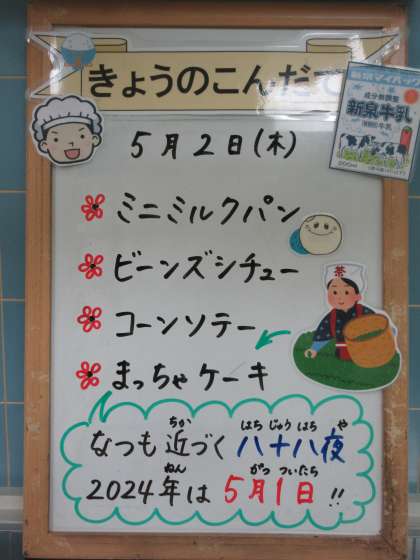 きょうのこんだて
新泉マイパック
成分無調整
新泉牛乳
200ml
5月2日(木)
ミニミルクパン
ビーンズシチュー
茶
コーンソテー
まっちゃケーキ
ちか はち じゅう はち や
なつも近づく八十八夜
ねん がつ ついたち
2024年は5月1日!!